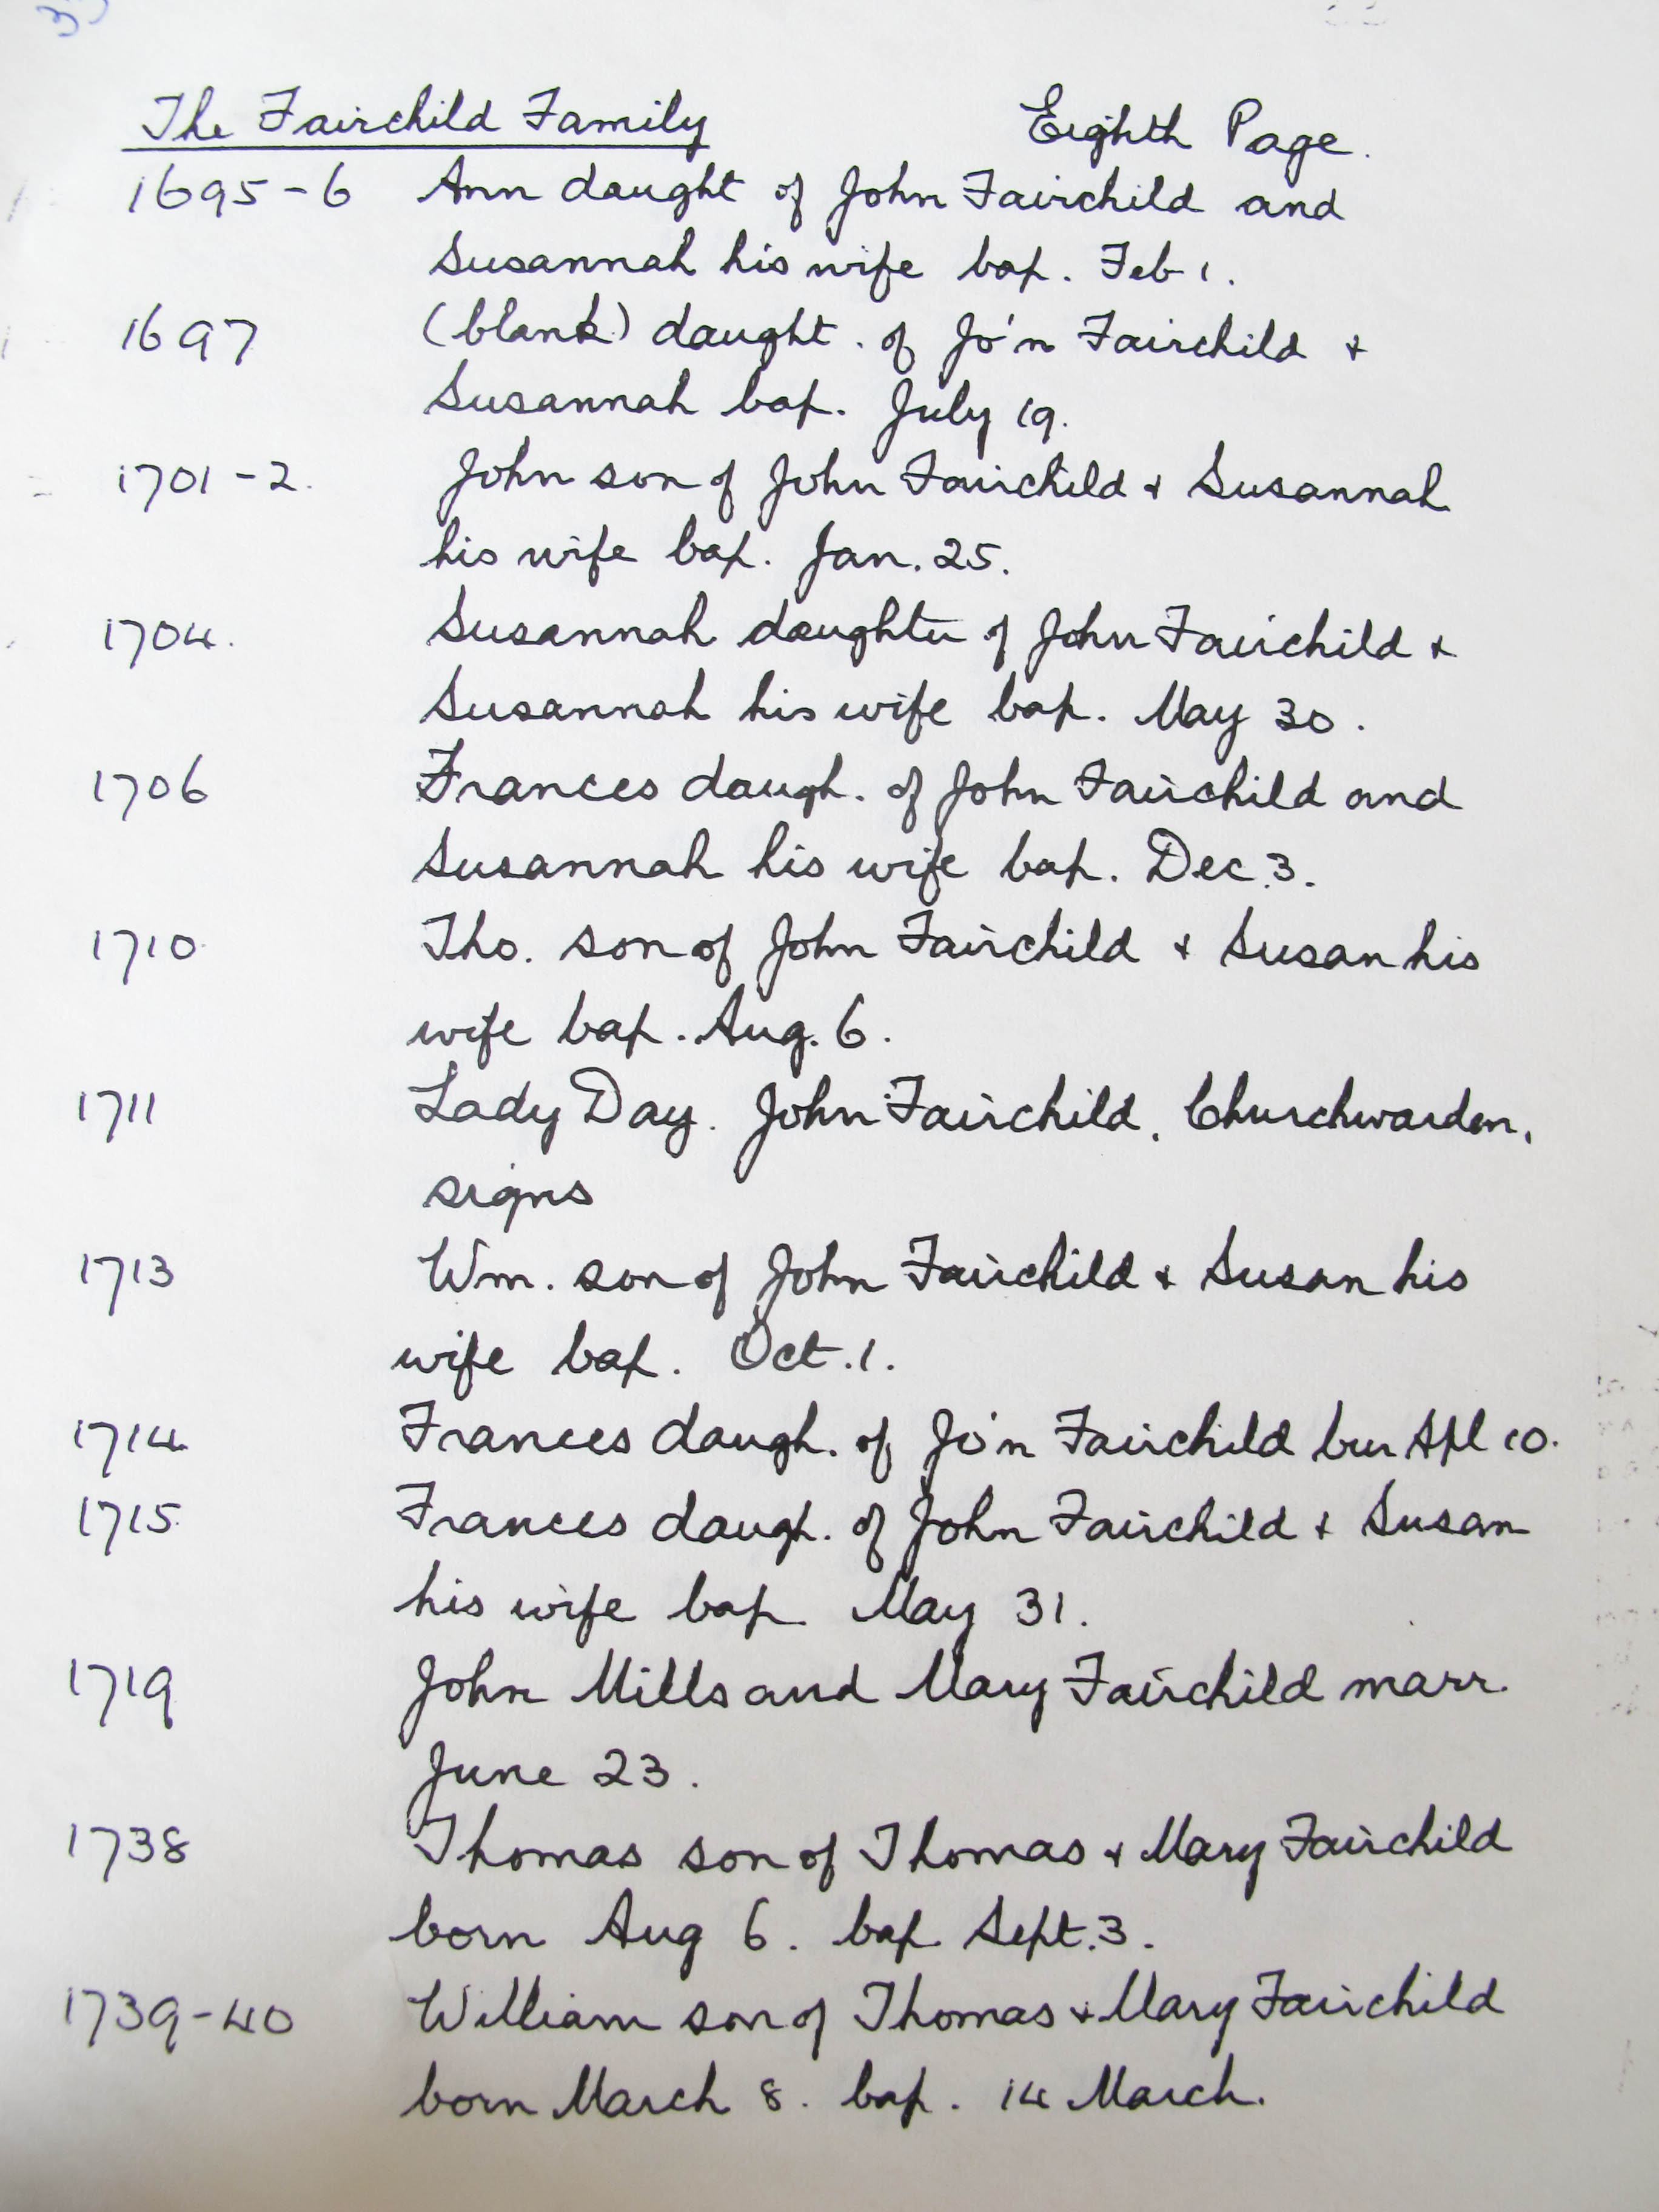 The Fairchild Family Eighth Page.
1695-6 Ann daught of John Fairchild and
Susannah his wife bap. Feb 1.
1697 (blank) daught. of Jo'n Fairchild +
Susannah bap. July 19.
1701-2. John son of John Fairchild + Susannah
his wife bap. Jan. 25.
1704. Susannah daughter of John Fairchild +
Susannah his wife bap. May 30.
1706 Frances daugh. of John Fairchild and
Susannah his wife bap. Dec. 3.
1710 Tho. son of John Fairchild + Susan his
wife bap. Aug. 6.
1711 Lady Day. John Fairchild, Churchwarden,
signs
1713 Wm. son of John Fairchild + Susan his
wife bap. Oct. 1.
1714 Frances daugh. of Jo'n Fairchild bur Apl 10.
1715 Frances daugh. of John Fairchild + Susan
his wife bap May 31.
1719 John Mills and Mary Fairchild marr.
June 23.
1738 Thomas son of Thomas + Mary Fairchild
born Aug 6. bap. Sept. 3.
1739-40 William son of Thomas + Mary Fairchild
born March 8. bap. 14 March.